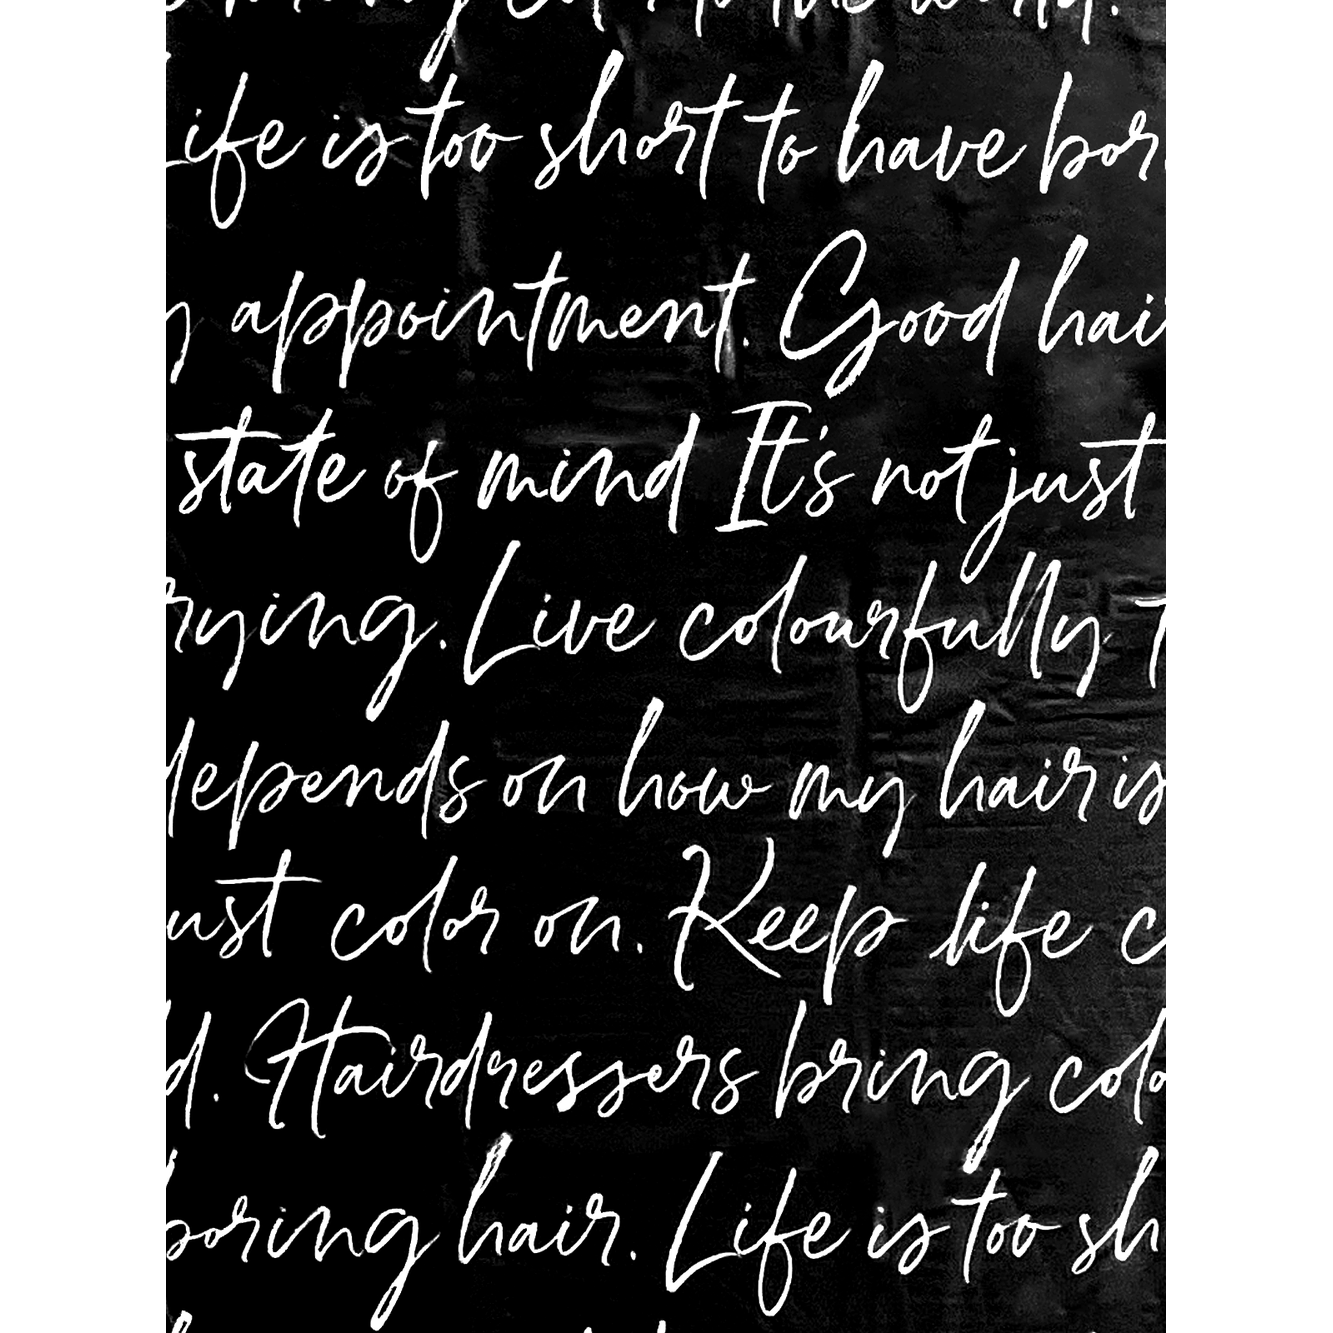 to the world.
Life is too short to have bor
y appointment. Good hair
state of mind It's not just
rying. Live colourfully
depends on how my hair is
ust color on. Keep life c
d. Hairdressers bring colo
boring hair. Life is too sh